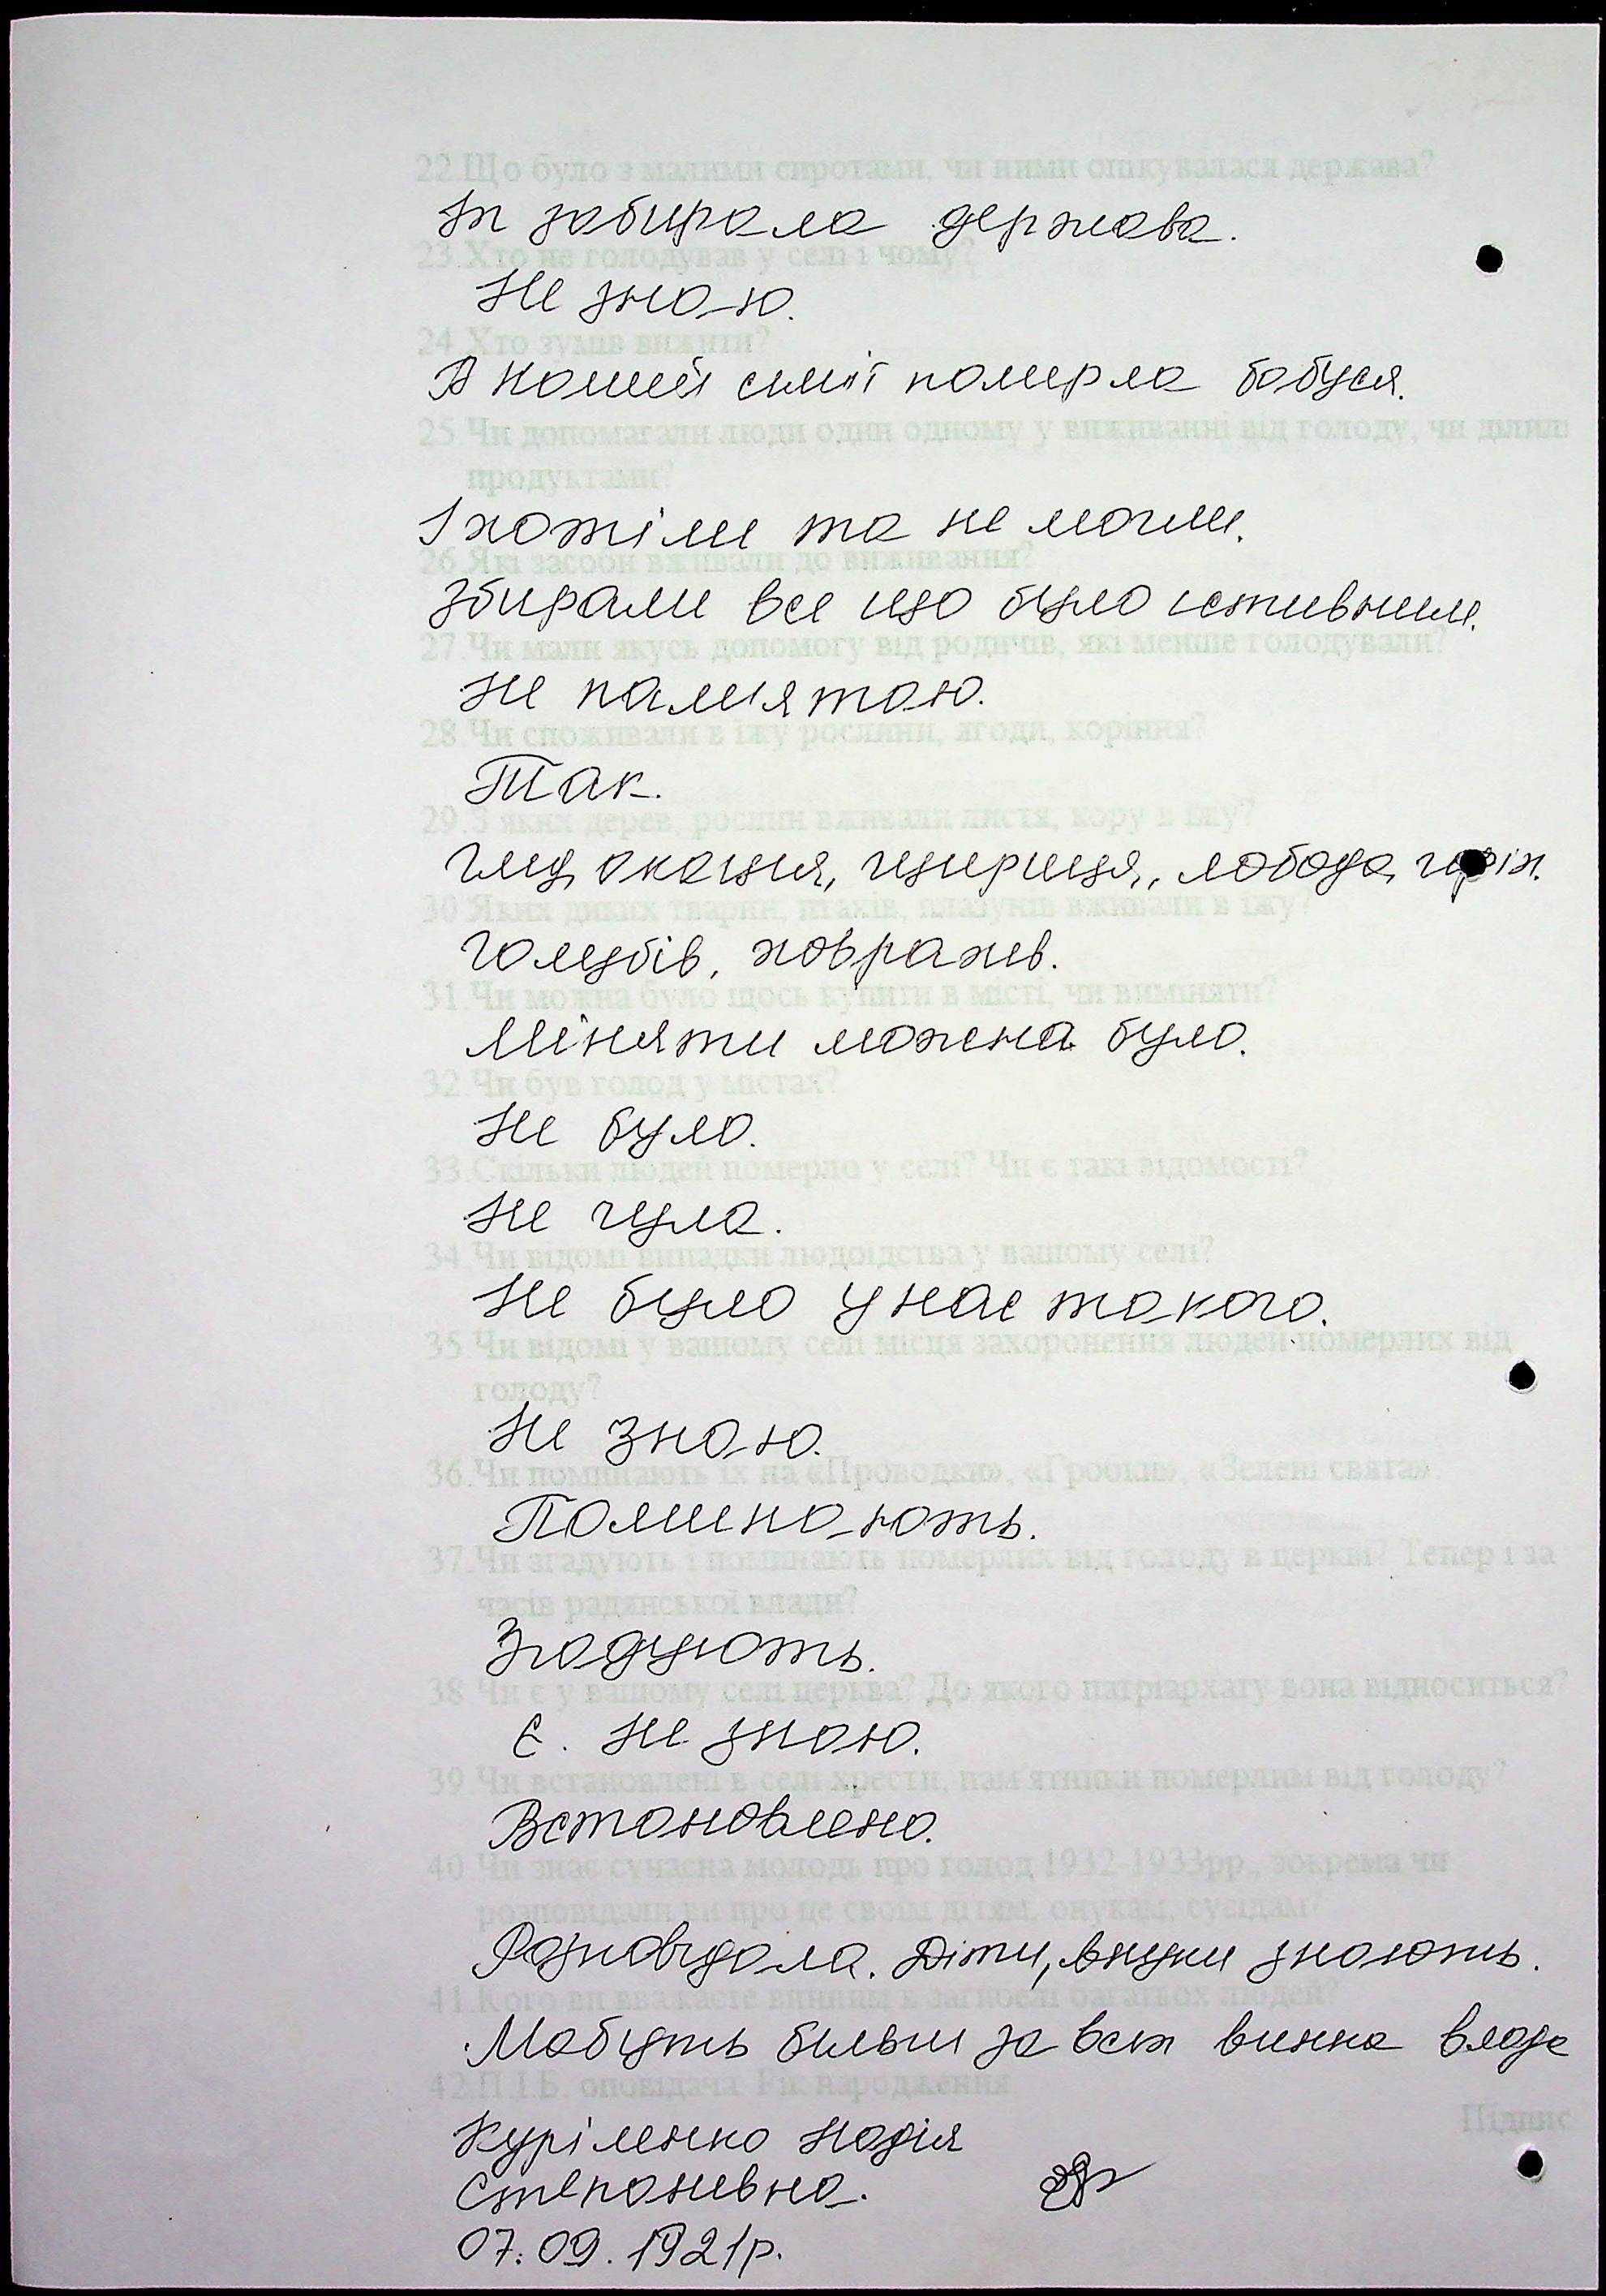 22.Що було з малими сиротами, чи ними опікувалася держава?
Їх забирала держава.
23.Хто не голодував у селі і чому?
Не знаю.
24.Хто зумів вижити?
В нашей сімїї померла бабуся.
25.Чи допомагали люди один одному у виживанні від голоду, чи ділили
продуктами?
І хотіли та не могли.
26.Які засоби вживали до виживання?
Збирали все що було їстивним.
27.Чи мали якусь допомогу від родичів, які менше голодували?
Не памʼятаю.
28.Чи споживали в їжу рослини, ягоди, коріння?
Так.
29.З яких дерев, рослин вживали листя, кору в їжу?
акація, щириця, лобода,
30.Яких диких тварин, птахів, плазунів вживали в їжу?
Голубів, ховрахів.
31.Чи можна було щось купити в місті, чи виміняти?
Міняти можена було.
32.Чи був голод у містах?
Не було.
33.Скільки людей померло у селі? Чи є такі відомості?
Не чула.
34.Чи відомі випадки людоїдства у вашому селі?
Не було у нас такого.
35.Чи відомі у вашому селі місця захоронення людей померлих від
голоду?
Не знаю.
36.Чи поминають їх на «Проводки», «Гробки», «Зелені свята».
Поминають.
37.Чи згадують і поминають померлих від голоду в церкві? Тепер і за
часів радянської влади?
Згадують.
38.Чи є у вашому селі церква? До якого патріархату вона відноситься?
Є. Не знаю.
39.Чи встановлені в селі хрести, пам'ятники померлим від голоду?
Встановлено.
40.Чи знає сучасна молодь про голод 1932-1933рр., зокрема чи
розповідали ви про це своїм дітям, онукам, сусідам?
Розповідала. Діти, внуки знають.
41.Кого ви вважаєте винним в загибелі багатьох людей?
Мабуть більш за всіх винна влада
42.П.І.Б. оповідача. Рік народження
Підпис
Куріленко Надія
Степанивна.
07.09.1921р.